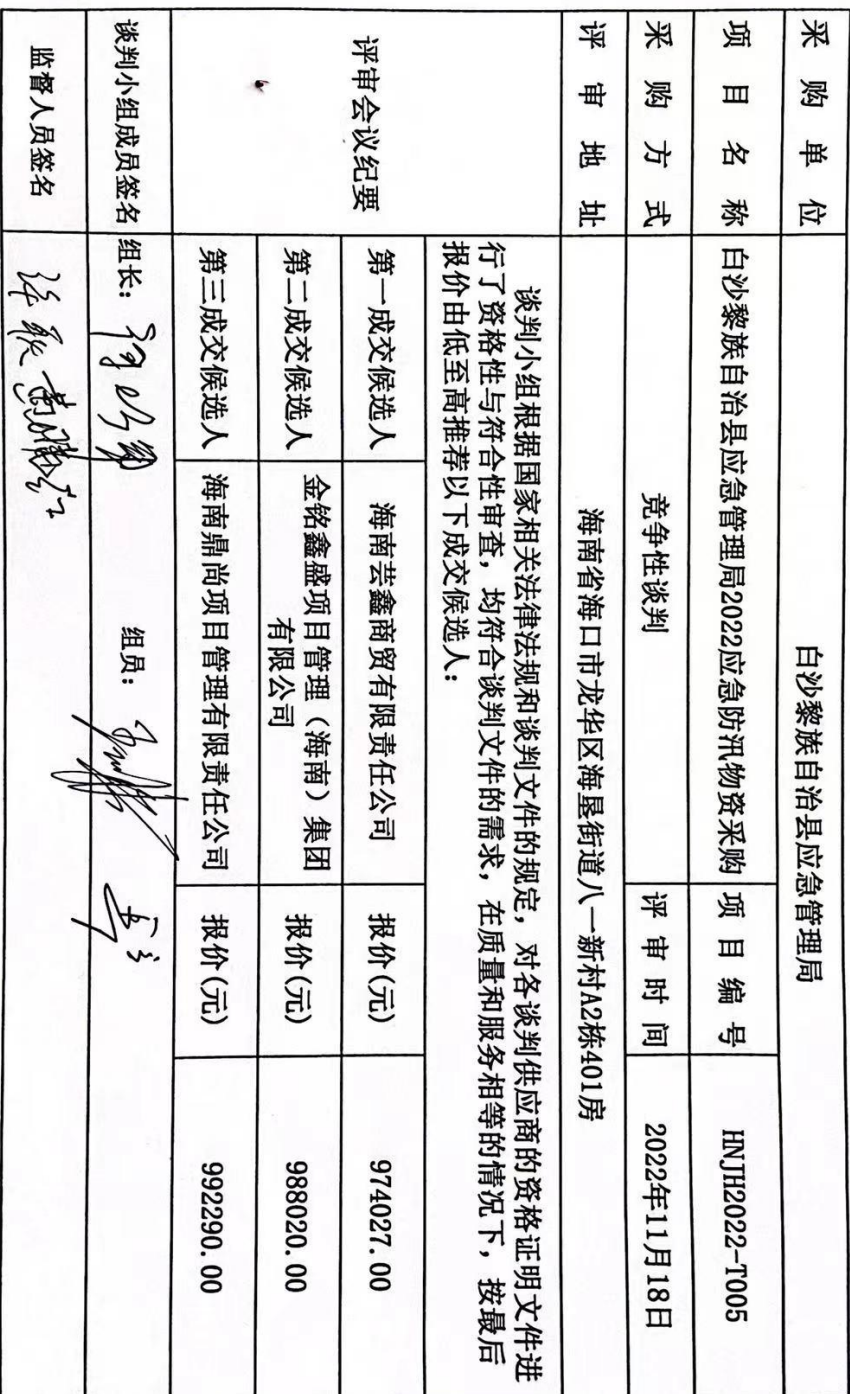 采购单位 白沙黎族自治县应急管理局
项目名称 白沙黎族自治县应急管理局2022应急防汛物资采购 项目编号 HNJH2022-T005
采购方式 竞争性谈判 评审时间 2022年11月18日
评审地址 海南省海口市龙华区海垦街道八一新村A2栋401房
评审会议纪要
谈判小组根据国家相关法律法规和谈判文件的规定，对各谈判供应商的资格证明文件进
行了资格性与符合性审查，均符合谈判文件的需求，在质量和服务相等的情况下，按最后
报价由低至高推荐以下成交候选人：
第一成交候选人 海南芸鑫商贸有限责任公司 报价(元) 974027.00
第二成交候选人 金铭鑫盛项目管理（海南）集团
有限公司 报价(元) 988020.00
第三成交候选人 海南鼎尚项目管理有限责任公司 报价(元) 992290.00
谈判小组成员签名 组长： 组员：
监督人员签名